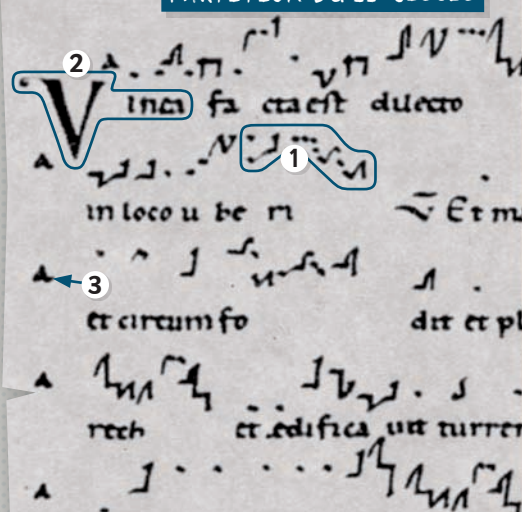 2
Vinea fa cta est dilecto
1
in loco u be ri Et m
3
et circum fo dit et pl
rech et edifica uit turre